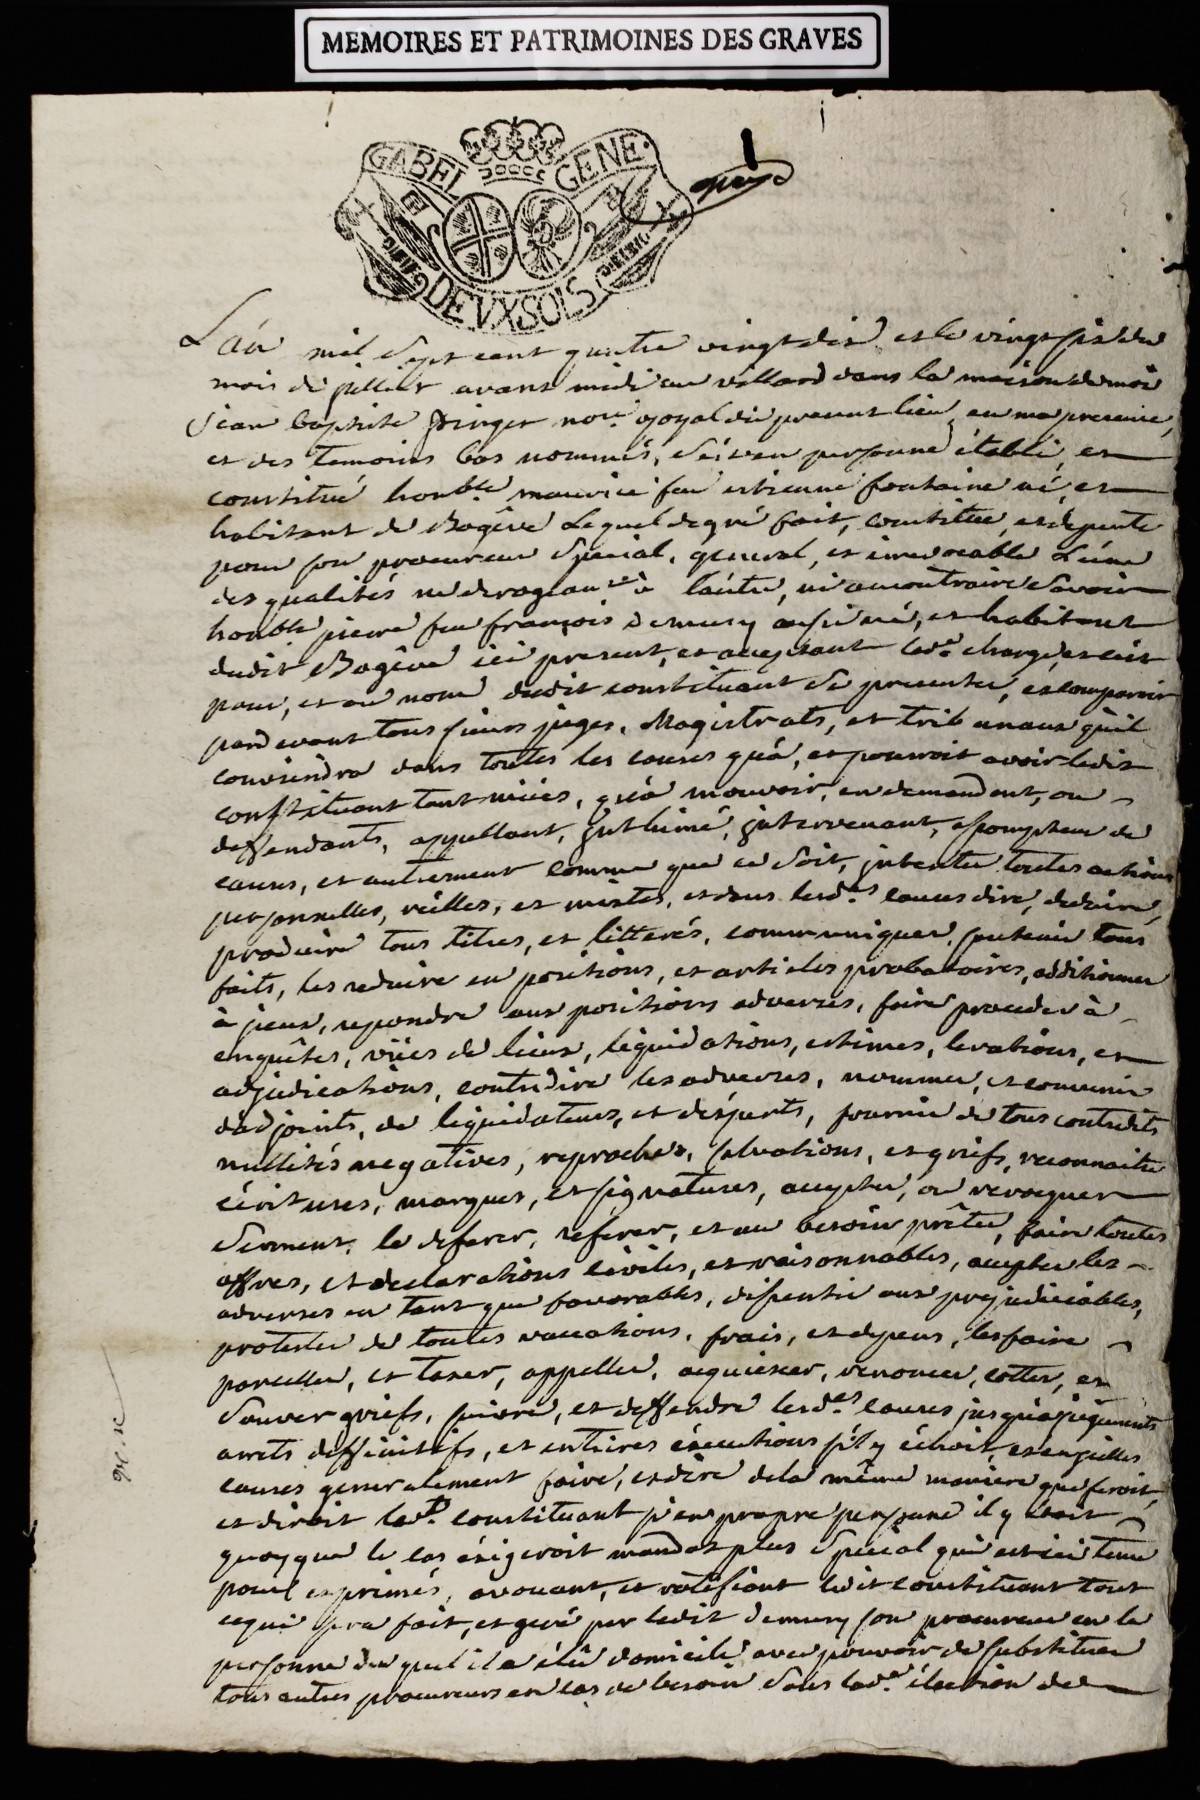 MEMOIRES ET PATRIMOINES DES GRAVES
GABEL GENE.
DEVX SOLS
L'an mil Sept cent quatre vingt dix et le vingt six du
mois de juillet avant midi au villard dans la maison de moi
Jean baptiste pringet nore royal du present lieu, en ma presence,
et des temoins bas nommés, s'est en personne établi, et
constitué honble maurice feu estienne fontaine né, et
habitant de Bogêve Lequel de gré fait, constitue, et depute
pour son procureur Special, general, et irrevocable L'une
des qualités ne derogeante à lautre, ni au contraire Savoir
honble pierre feu françois Demury aussi né, et habitant
dudit Bogêve ici present, et acceptant lade charge, et c'est
pour, et au nom dudit constituant Se presenter, et comparoir
pardevant tous sieurs juges, Magistrats, et tribunaux qu'il
conviendra dans toutes les causes qu'a, et pourroit avoir ledit
constituant tant mües, qu'à mouvoir, en demandant, ou
deffendants, appellant, jnthimé, jntervenant, assompteur de
causes, et autrement comme que ce Soit, jntenter toutes actions
personnelles, réelles, et mixtes, et dans lesdes causes dire, deduire,
produire tous titres, et litterés, communiquer, soutenir tous
faits, les reduire en positions, et articles probatoires, additionner
à jceux, repondre aux positions adverses, faire proceder à
enquêtes, vües de lieux, liquidations, estimes, levations, et
adjudications, contredire les adverses, nommer, et convenir
dadjoints, de liquidateurs, et d'experts, fournir de tous contredits
nullités negatives, reproches, salvations, et griefs, reconnaitre
écritures, marques, et signatures, accepter, ou revocquer
Serment, le deferer, referer, et au besoin prêter, faire toutes
offres, et declarations civiles, et raisonnables, accepter les
adverses en tant que favorables, dissentir aux prejudiciables,
protester de toutes vaccations, frais, et depens, les faire
parceller, et taxer, appeller, acquiescer, renoncer, cotter, et
Sauver griefs, suivre, et deffendre lesdes causes jusqu'a jugements
arrets deffinitifs, et entieres éxecutions s'il y échoit, et en jcelles
causes generalement faire, et dire de la même maniere que feroit,
et diroit led. constituant si en propre personne il y étoit
quoyque le cas éxigeroit mandat plus Special qui est ici tenu
pour exprimés, avouant, et ratifiant ledit constituant tout
ce qui sera fait, et geré par ledit Demury son procureur en la
personne duquel il a élû domicile avec pouvoir de substituer
tous autres procureurs en cas de besoin Sous lade élection de